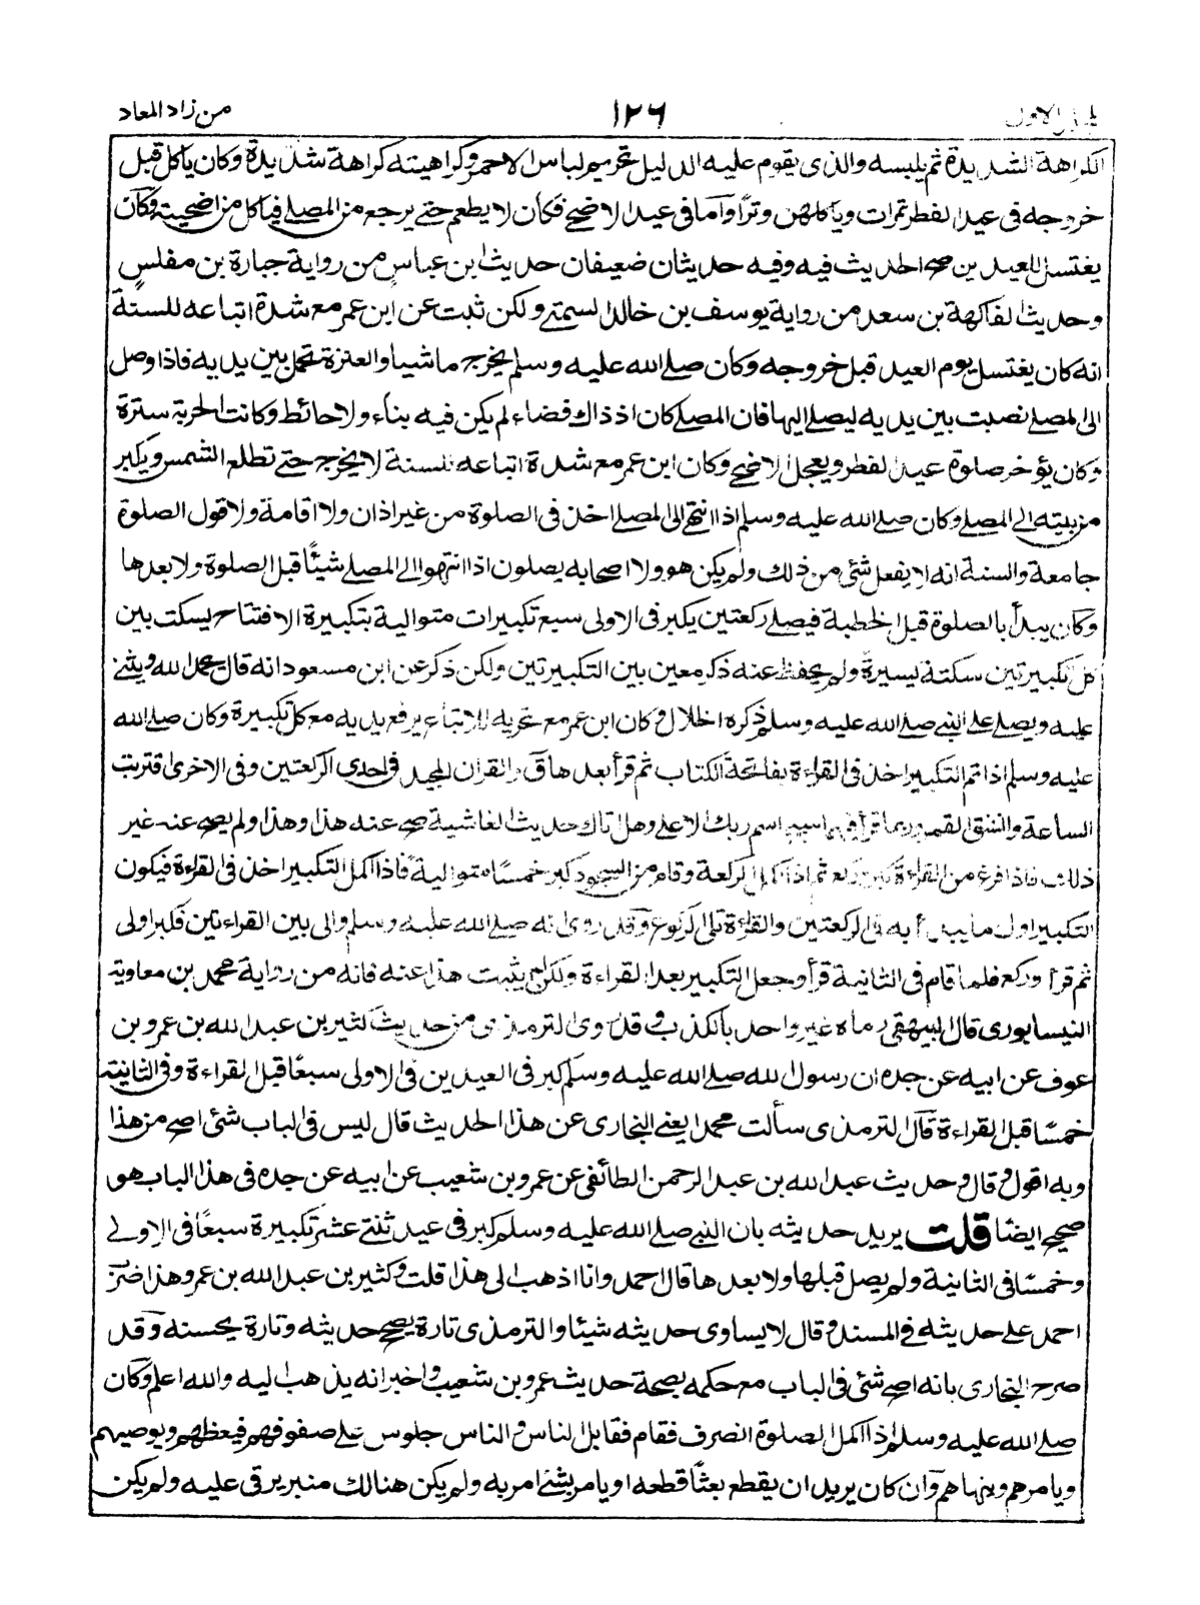 الجزء الاول ١٢٦ من زاد المعاد
الكراهة الشديدة ثم يلبسه والذى يقوم عليه الدليل تحريم لباس الاحمر وكراهيته كراهة شديدة وكان ياكل قبل
خروجه فى عيد الفطر تمرات وياكلهن وترًا وآما فى عيد الاضحى فكان لا يطعم حتى يرجع من المصلى فياكل من اضحيته وكآن
يغتسل للعيدين صح الحديث فيه وفيه حديثان ضعيفان حديث ابن عباس من رواية جبارة بن مفلس
وحديث الفاكهة بن سعد من رواية يوسف بن خالد السمتى ولكن ثبت عن ابن عمر مع شدة اتباعه للسنة
انه كان يغتسل يوم العيد قبل خروجه وكان صلى الله عليه وسلم يخرج ماشيا والعنزة تحمل بين يديه فاذا وصل
الى المصلى نصبت بين يديه ليصلى اليها فان المصلى كان اذ ذاك فضاء لم يكن فيه بناء ولا حائط وكانت الحربة سترة
وكان يؤخر صلوة عيد الفطر ويعجل الاضحى وكان ابن عمر مع شدة اتباعه للسنة لا يخرج حتى تطلع الشمس ويكبر
من بيته الى المصلى وكان صلى الله عليه وسلم اذا انتهى الى المصلى اخذ فى الصلوة من غير اذان ولا اقامة ولا قول الصلوة
جامعة والسنة انه لا يفعل شئ من ذلك ولم يكن هو ولا اصحابه يصلون اذا انتهوا الى المصلى شيئًا قبل الصلوة ولا بعدها
وكان يبدأ بالصلوة قبل الخطبة فيصلى ركعتين يكبر فى الاولى سبع تكبيرات متوالية بتكبيرة الافتتاح يسكت بين
كل تكبيرتين سكتة يسيرة ولم يحفظ عنه ذكر معين بين التكبيرتين ولكن ذكر عن ابن مسعود انه قال يحمد الله ويثنى
عليه ويصلى على النبى صلى الله عليه وسلم ذكره الخلال وكان ابن عمر مع تحريه للاتباع يرفع يديه مع كل تكبيرة وكان صلى الله
عليه وسلم اذا تم التكبير اخذ فى القراءة بفاتحة الكتاب ثم قرأ بعدها قٓ والقران المجيد فى احدى الركعتين وفى الاخرى اقتربت
الساعة وانشق القمر وربما قرأ فيهما سبح اسم ربك الاعلى وهل اتاك حديث الغاشية صح عنه هذا وهذا ولم يصح عنه غير
ذلك فاذا فرغ من القراءة كبر وركع ثم اذا اكمل الركعة وقام من السجود كبر خمسًا متوالية فاذا اكمل التكبير اخذ فى القراءة فيكون
التكبير اول ما يبدأ به فى الركعتين والقراءة تلى الركوع وقد روى انه صلى الله عليه وسلم والى بين القراءتين فكبر اولى
ثم قرأ وركع فلما قام فى الثانية قرأ وجعل التكبير بعد القراءة ولكن لم يثبت هذا عنه فانه من رواية محمد بن معاوية
النيسابورى قال البيهقى رماه غير واحد بالكذب وقد روى الترمذى من حديث كثير بن عبد الله بن عمرو بن
عوف عن ابيه عن جده ان رسول الله صلى الله عليه وسلم كبر فى العيدين فى الاولى سبعًا قبل القراءة وفى الثانية
خمسًا قبل القراءة قآل الترمذى سألت محمدا يعنى البخارى عن هذا الحديث قال ليس فى الباب شئ اصح من هذا
وبه اقول وقال وحديث عبد الله بن عبد الرحمن الطائفى عن عمرو بن شعيب عن ابيه عن جده فى هذا الباب هو
صحيح ايضًا قلت يريد حديثه بان النبى صلى الله عليه وسلم كبر فى عيد ثنتى عشر تكبيرة سبعًا فى الاولى
وخمسًا فى الثانية ولم يصل قبلها ولا بعدها قال احمد وانا اذهب الى هذا قلت وكثير بن عبد الله بن عمرو هذا ضرب
احمد على حديثه فى المسند وقال لا يساوى حديثه شيئا والترمذى تارة يصحح حديثه وتارة يحسنه وقد
صرح البخارى بانه اصح شئ فى الباب مع حكمه بصحة حديث عمرو بن شعيب واخبر انه يذهب اليه والله اعلم وكان
صلى الله عليه وسلم اذا اكمل الصلوة انصرف فقام فقابل الناس والناس جلوس على صفوفهم فيعظهم ويوصيهم
ويامرهم وينهاهم وآن كان يريد ان يقطع بعثًا قطعه او يامر بشئ امر به ولم يكن هنالك منبر يرقى عليه ولم يكن